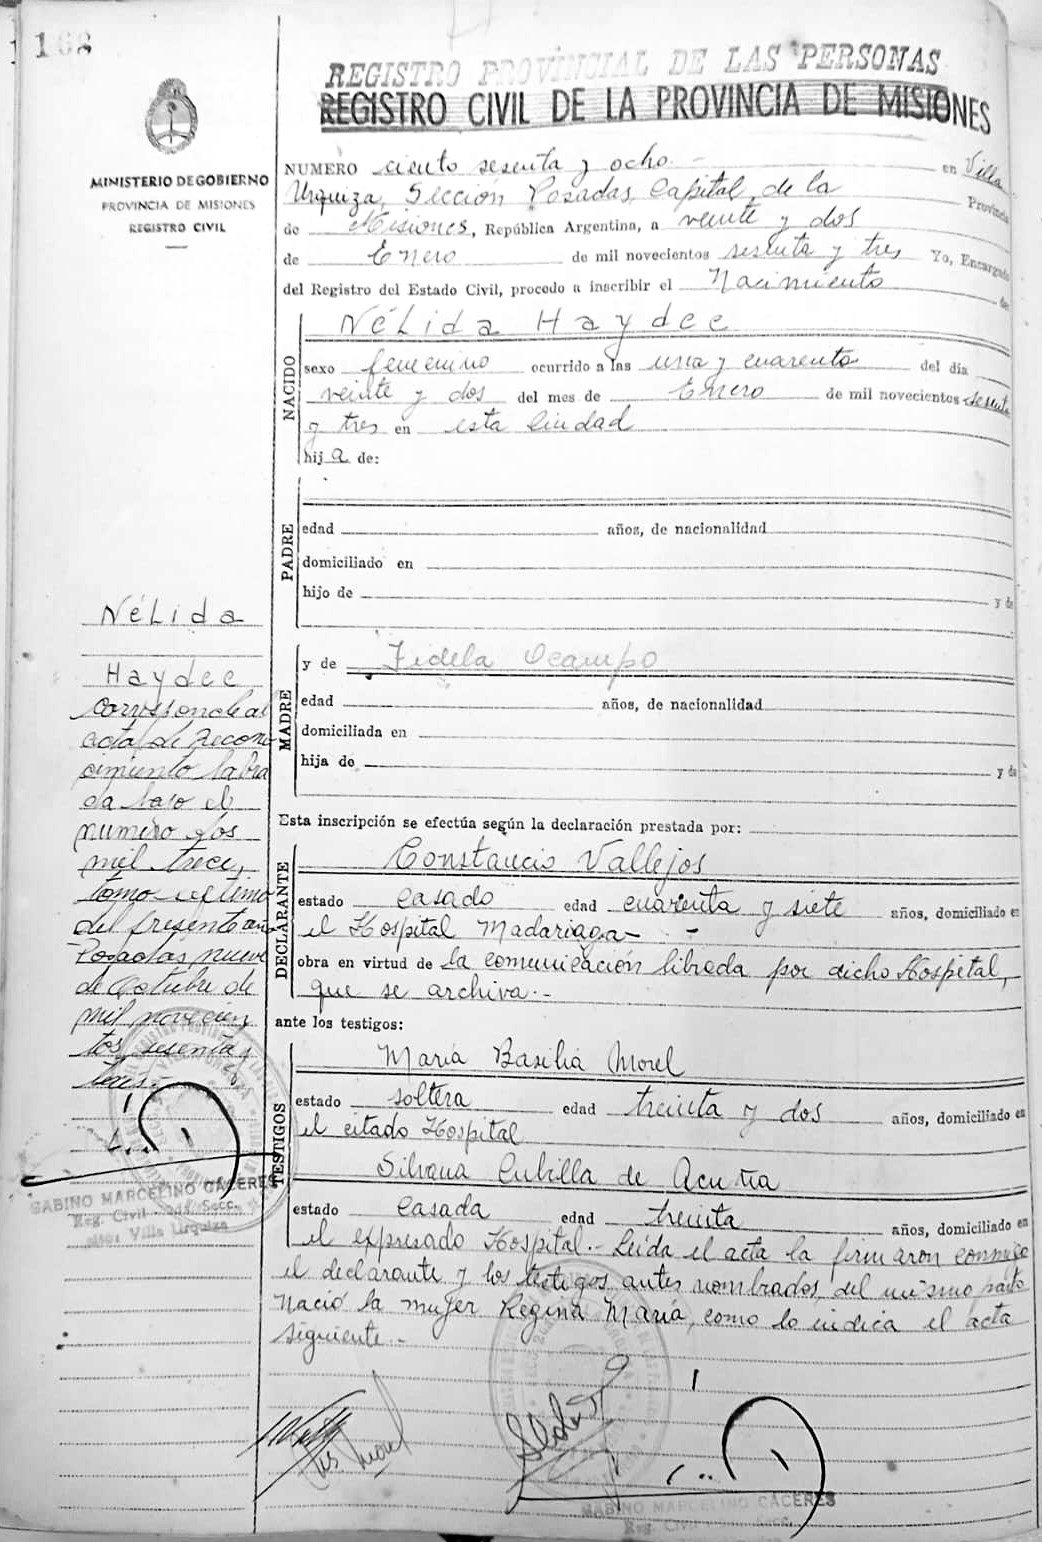 168
REGISTRO PROVINCIAL DE LAS PERSONAS
REGISTRO CIVIL DE LA PROVINCIA DE MISIONES
MINISTERIO DE GOBIERNO
PROVINCIA DE MISIONES
REGISTRO CIVIL
NUMERO ciento sesenta y ocho.- en Villa
Urquiza, Sección Posadas, Capital, de la Provincia
de Misiones, República Argentina, a veinte y dos
de Enero de mil novecientos sesenta y tres Yo, Encargado
del Registro del Estado Civil, procedo a inscribir el Nacimiento de
NACIDO
NéLida Haydee
sexo femenino ocurrido a las una y cuarenta del día
veinte y dos del mes de Enero de mil novecientos sesenta
y tres en esta Ciudad
hija de:
PADRE
edad años, de nacionalidad
domiciliado en
hijo de y de
MADRE
y de Fidela Ocampo
edad años, de nacionalidad
domiciliada en
hija de y de
Esta inscripción se efectúa según la declaración prestada por:
DECLARANTE
Constancio Vallejos
estado casado edad cuarenta y siete años, domiciliado en
el Hospital Madariaga- -
obra en virtud de la comunicación librada por dicho Hospital,
que se archiva.-
ante los testigos:
TESTIGOS
María Basilia Morel
estado soltera edad treinta y dos años, domiciliado en
el citado Hospital
Silvana Cubilla de Acuña
estado Casada edad treinta años, domiciliado en
el expresado Hospital.- Leída el acta la firmaron conmigo
el declarante y los testigos antes nombrados, del mismo parto
Nació la mujer Regina María, como lo indica el acta
siguiente.-
NéLida
Haydee
Corresponde al
acta de recono
cimiento labra
da bajo el
numero dos
mil trece,
tomo septimo
del presente año
Posadas, nueve
de Octubre de
mil novecien
tos sesenta y
tres.-
GABINO MARCELINO CACERES
Reg. Civil Secc.
Villa Urquiza
GABINO MARCELINO CACERES
Reg. Civil Secc.